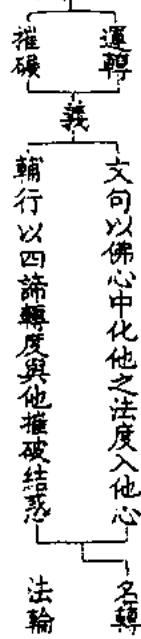 運轉
摧碾
義
文句以佛心中化他之法度入他心
輔行以四諦轉度與他摧破結惑
名轉
法輪